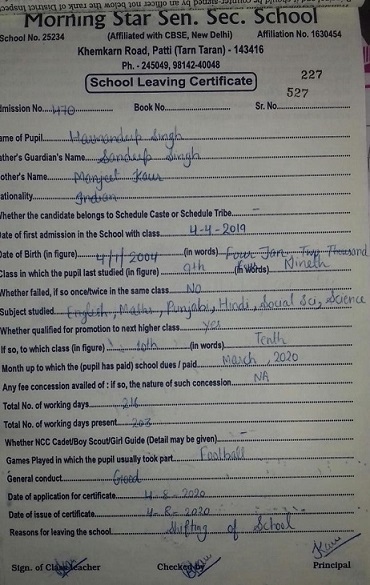 Morning Star Sen. Sec. School
School No. 25234 (Affiliated with CBSE, New Delhi) Affiliation No. 1630454
Khemkarn Road, Patti (Tarn Taran) - 143416
Ph. - 245049, 98142-40048
School Leaving Certificate 227
527
dmission No. 470 Book No. Sr. No.
ame of Pupil Harmandeep Singh
ather's Guardian's Name Sandeep Singh
other's Name Manjeet Kour
ationality Indian
Whether the candidate belongs to Schedule Caste or Schedule Tribe -
Date of first admission in the School with class 4-4-2019
Date of Birth (in figure) 4/1/2004 (in words) Four Jan Two Thousand
Class in which the pupil last studied (in figure) 9th (in words) Nineth
Whether failed, if so once/twice in the same class NO
Subject studied English, Maths, Punjabi, Hindi, Social Sci, Science
Whether qualified for promotion to next higher class yes
If so, to which class (in figure) 10th (in words) Tenth
Month up to which the (pupil has paid) school dues / paid March, 2020
Any fee concession availed of : if so, the nature of such concession NA
Total No. of working days 216
Total No. of working days present 203
Whether NCC Cadet/Boy Scout/Girl Guide (Detail may be given) -
Games Played in which the pupil usually took part Football
General conduct Good
Date of application for certificate 4-8-2020
Date of issue of certificate 4-8-2020
Reasons for leaving the school Shifting of School
Sign. of Class teacher Checked by Principal